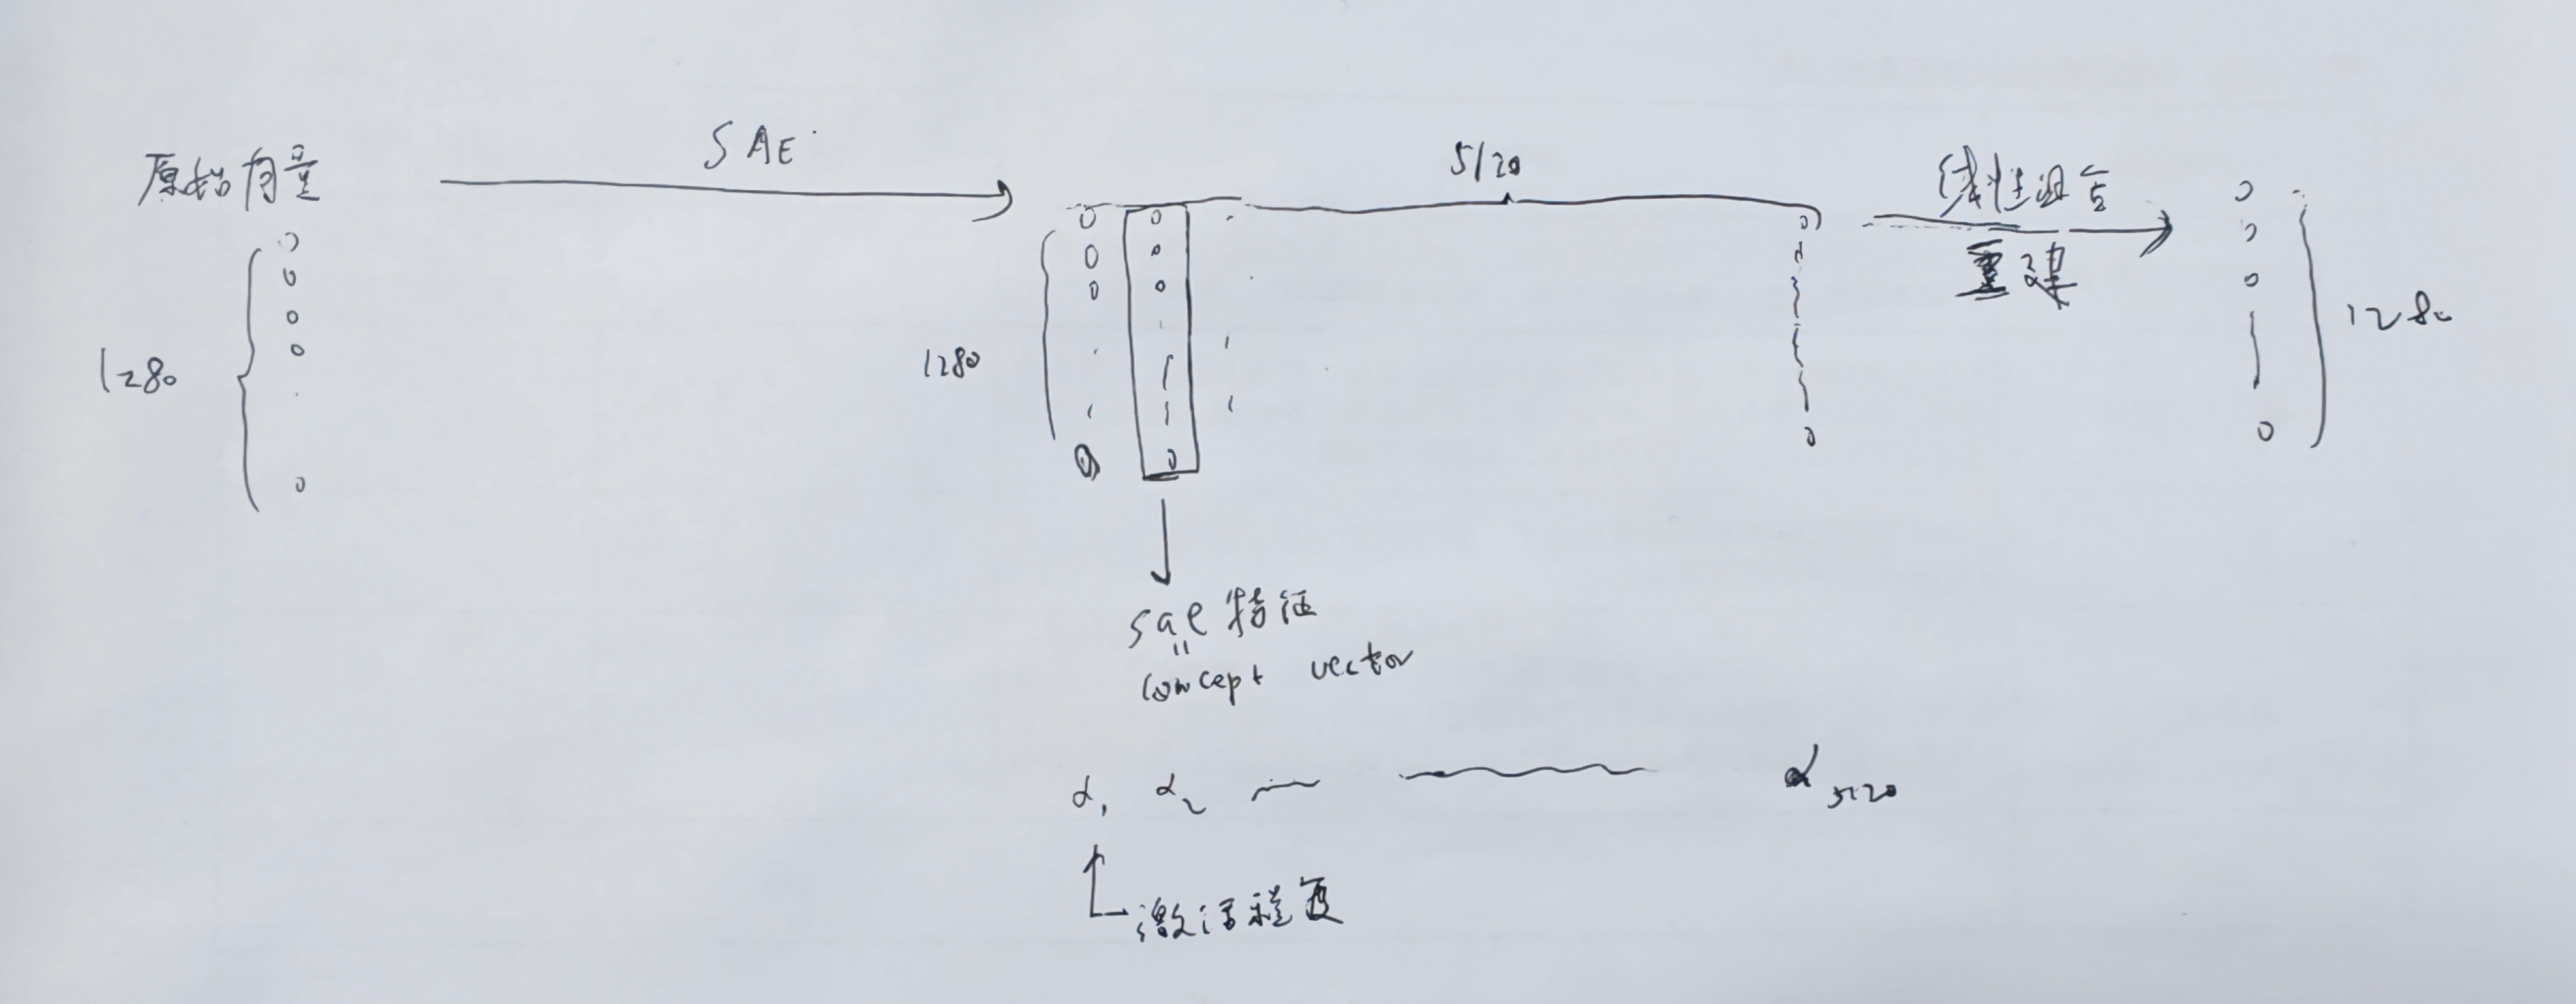 原始向量
SAE
5120
线性组合
重建
1280
1280
1280
sae 特征
=
concept vector
α₁ α₂ α₅₁₂₀
激活程度